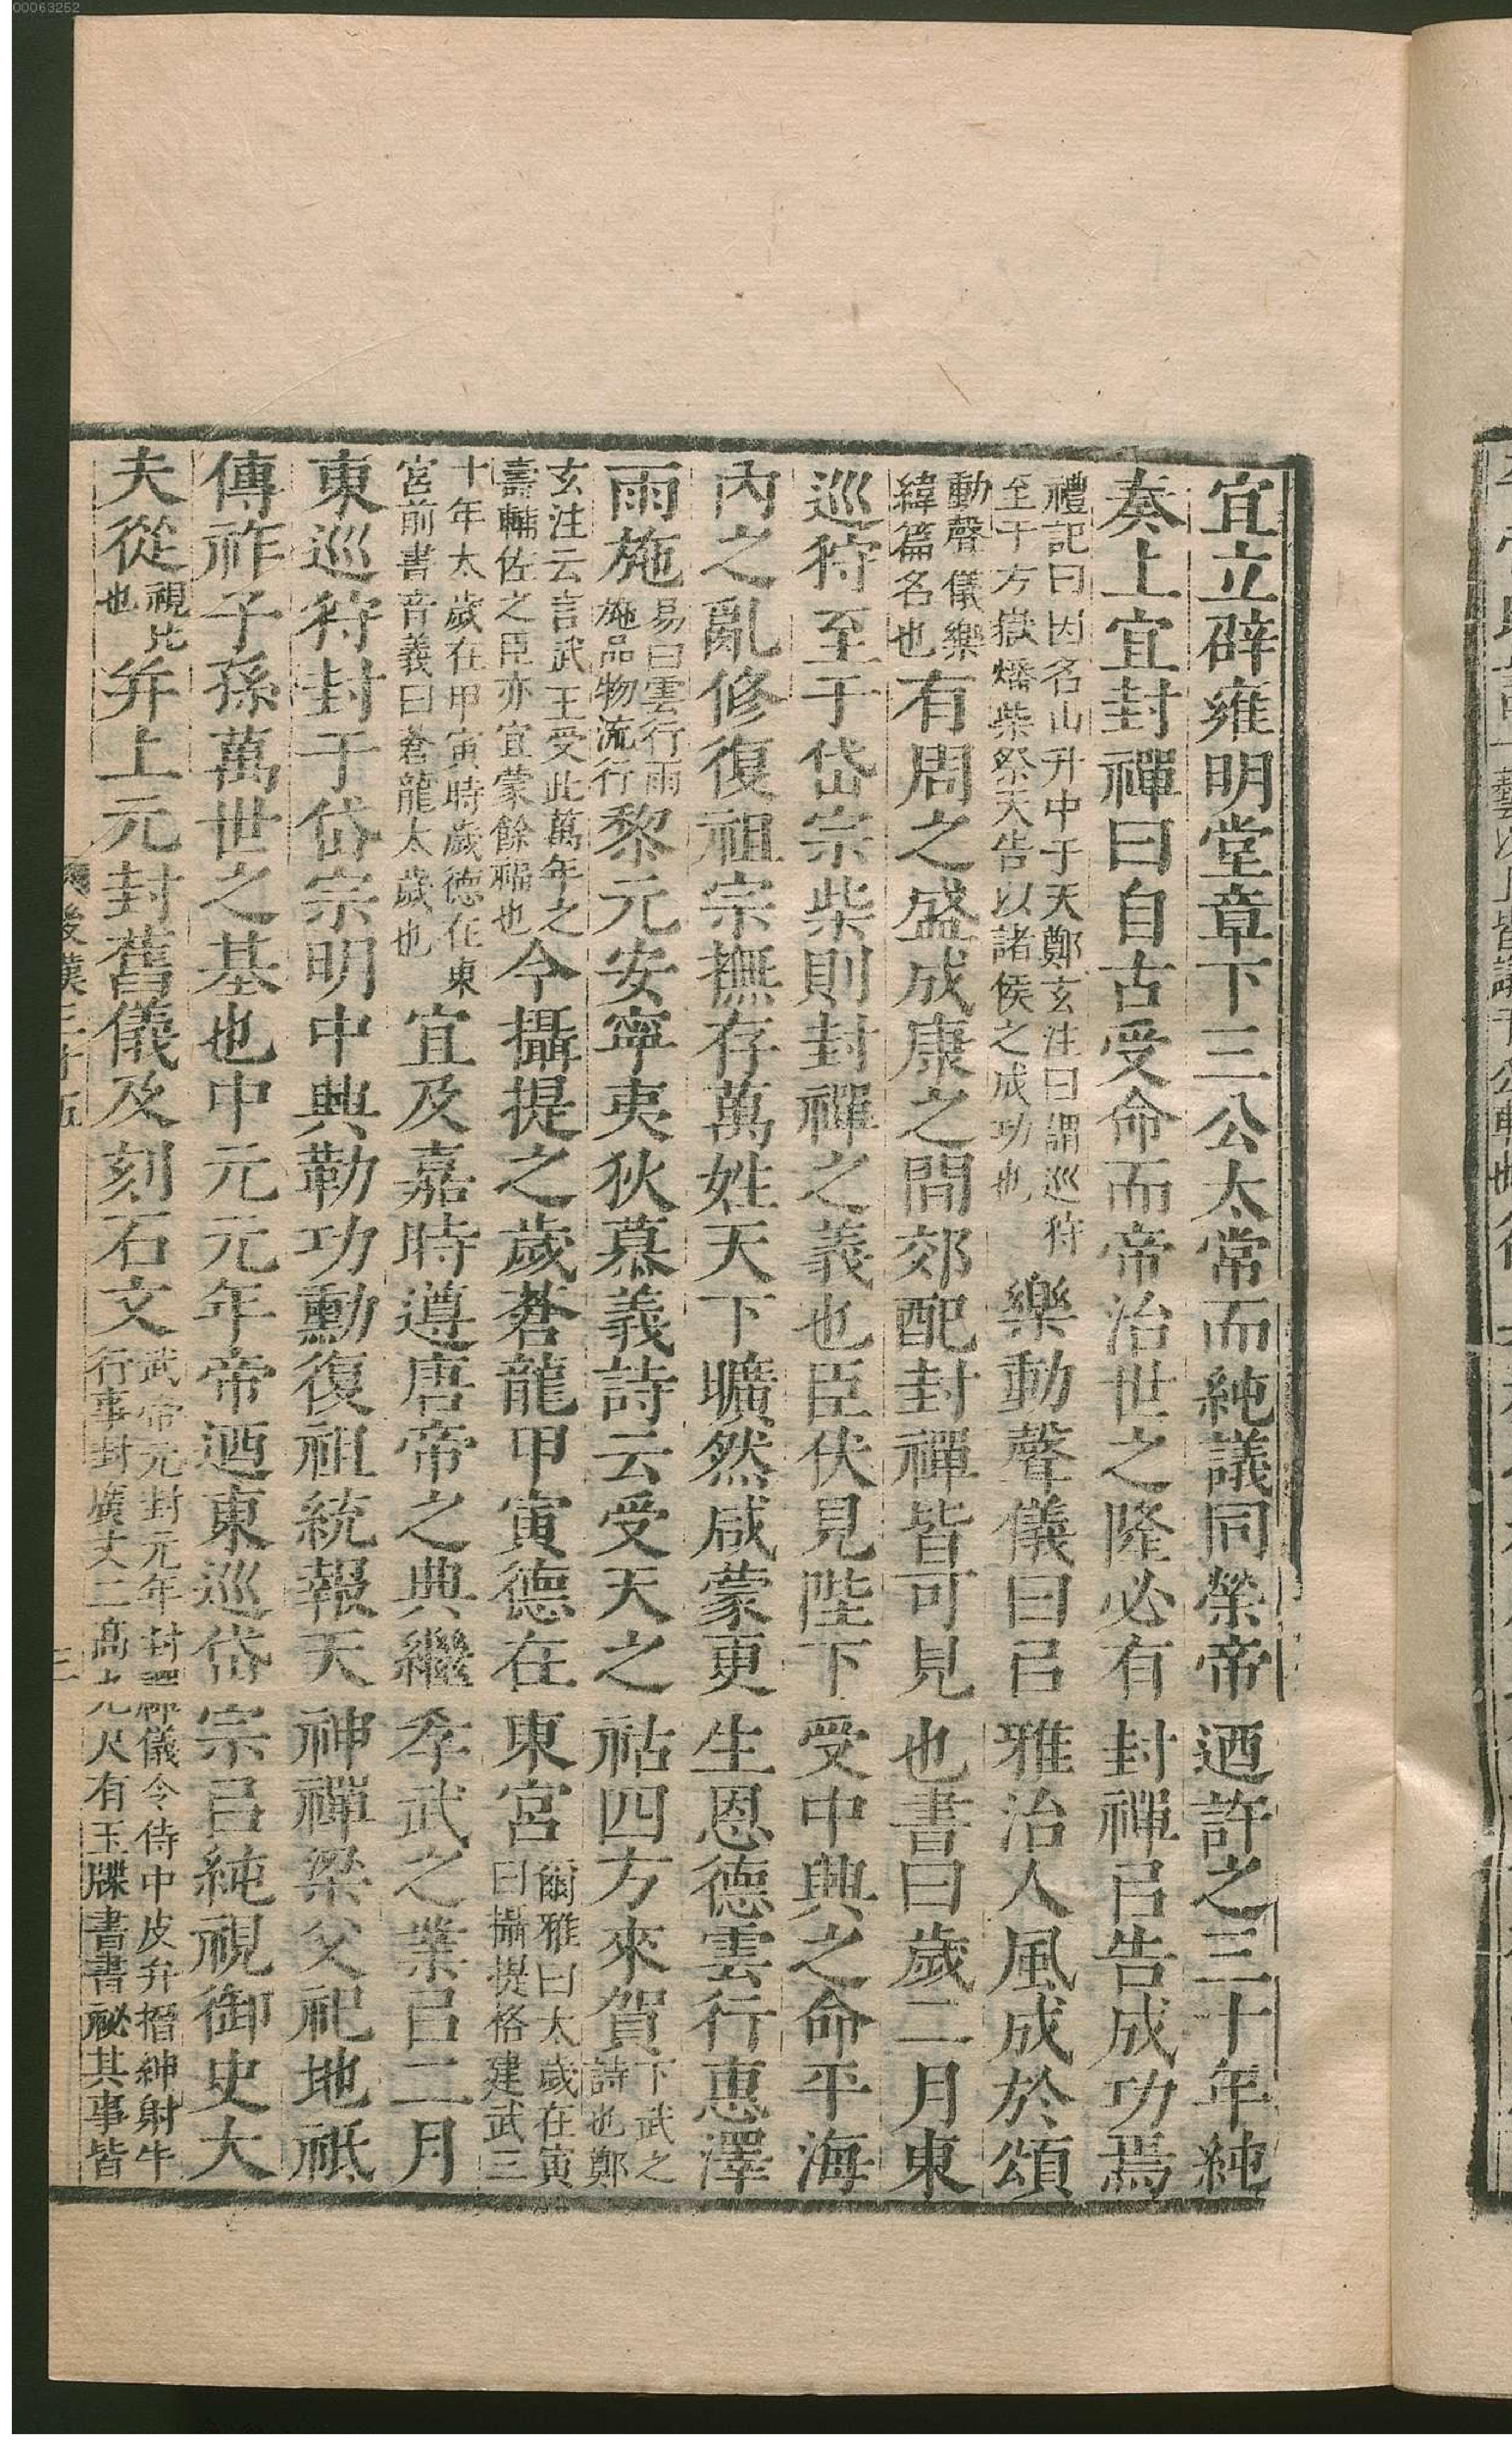 00063252
宜立辟雍明堂章下三公太常而純議同榮帝迺許之三十年純
奏上宜封禪曰自古受命而帝治世之隆必有封禪㠯告成功焉
禮記曰因名山升中于天鄭玄注曰謂巡狩
至于方嶽燔柴祭天告以諸侯之成功也
樂動聲儀曰㠯雅治人風成於頌
動聲儀樂
緯篇名也
有周之盛成康之間郊配封禪皆可見也書曰歲二月東
巡狩至于岱宗柴則封禪之義也臣伏見陛下受中興之命平海
內之亂修復祖宗撫存萬姓天下曠然咸蒙更生恩德雲行惠澤
雨施
易曰雲行雨
施品物流行
黎元安寧夷狄慕義詩云受天之祜四方來賀
下武之
詩也鄭
玄注云言武王受此萬年之
壽輔佐之臣亦宜蒙餘福也
今攝提之歲蒼龍甲寅德在東宮
爾雅曰太歲在寅
曰攝提格建武三
十年太歲在甲寅時歲德在東
宮前書音義曰蒼龍太歲也
宜及嘉時遵唐帝之典繼孝武之業㠯二月
東巡狩封于岱宗明中興勒功勳復祖統報天神禪梁父祀地祇
傳祚子孫萬世之基也中元元年帝迺東巡岱宗㠯純視御史大
夫從
視比
也
并上元封舊儀及刻石文
武帝元封元年封禪儀令侍中皮弁搢紳射牛
行事封廣丈二高九尺有玉牒書書祕其事皆
後漢三十五
三